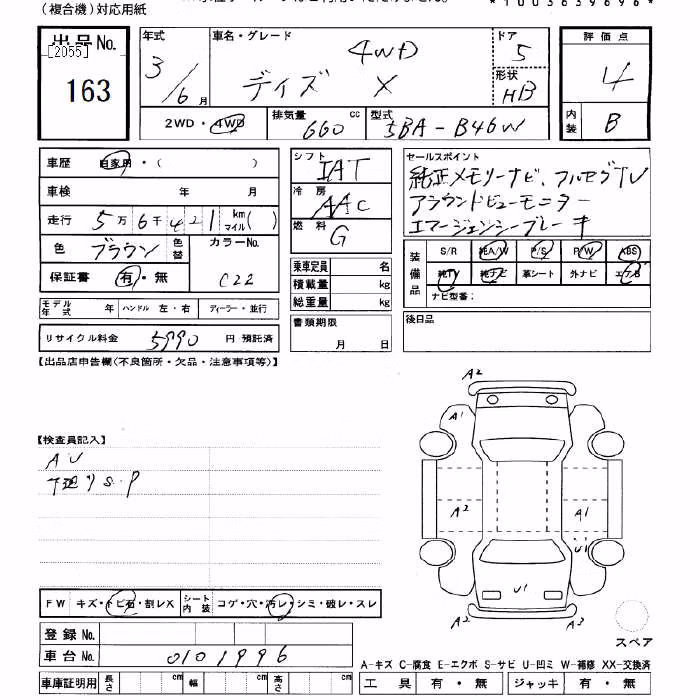 (複合機)対応用紙
*1003639696*
出品No.
[2055]
163
年式
3/6月
車名・グレード
4WD
デイズ X
ドア
5
形状
HB
評価点
4
内装
B
2WD・4WD
排気量
660
cc
型式
5BA-B46W
車歴
自家用・( )
車検
年 月
走行
5万6千421
km
マイル( )
色
ブラウン
色替
カラーNo.
C22
保証書
有・無
モデル年式
年
ハンドル 左・右
ディーラー・並行
リサイクル料金
5990
円 預託済
シフト
IAT
冷房
AAC
燃料
G
乗車定員
名
積載量
kg
総重量
kg
書類期限
月 日
セールスポイント
純正メモリーナビ、フルセグTV
アラウンドビューモニター
エマージェンシーブレーキ
装備品
S/R
純A/W
P/S
P/W
ABS
純TV
純ナビ
革シート
外ナビ
エアB
ナビ型番:
後日品
【出品店申告欄(不良箇所・欠品・注意事項等)】
【検査員記入】
AU
下廻りS.P
A2
A1
A2
A1
U1
U1
A2
A3
スペア
FW
キズ・トビ石・割レX
シート内装
コゲ・穴・汚レ・シミ・破レ・スレ
登録No.
車台No.
0101996
車庫証明用
長さ
cm
幅
cm
高さ
cm
A-キズ C-腐食 E-エクボ S-サビ U-凹ミ W-補修 XX-交換済
工具
有・無
ジャッキ
有・無